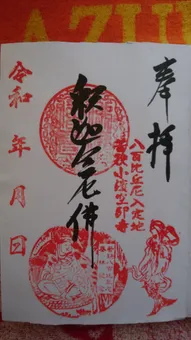 AZU
奉拝
八百比丘尼入定地
若狭小浜空印寺
釈迦牟尼佛
令和 年 月 日